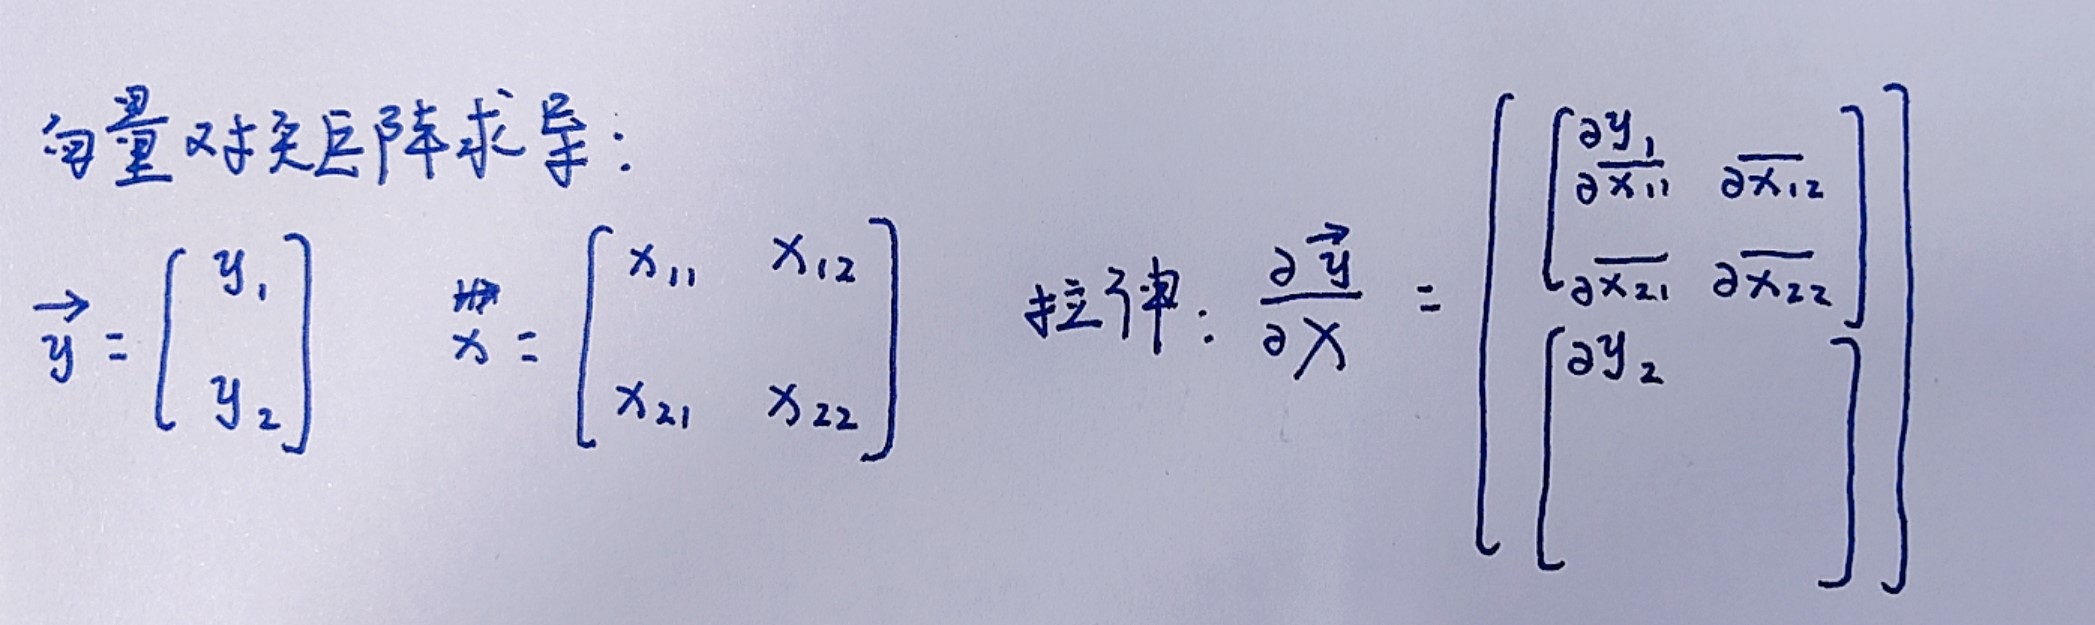 向量对矩阵求导：
y⃗ = [ y₁ y₂ ] x = [ x₁₁ x₁₂ x₂₁ x₂₂ ] 拉伸： ∂y⃗/∂X = [ [ ∂y₁/∂x₁₁ /∂x₁₂ /∂x₂₁ /∂x₂₂ ] [ ∂y₂ ] ]